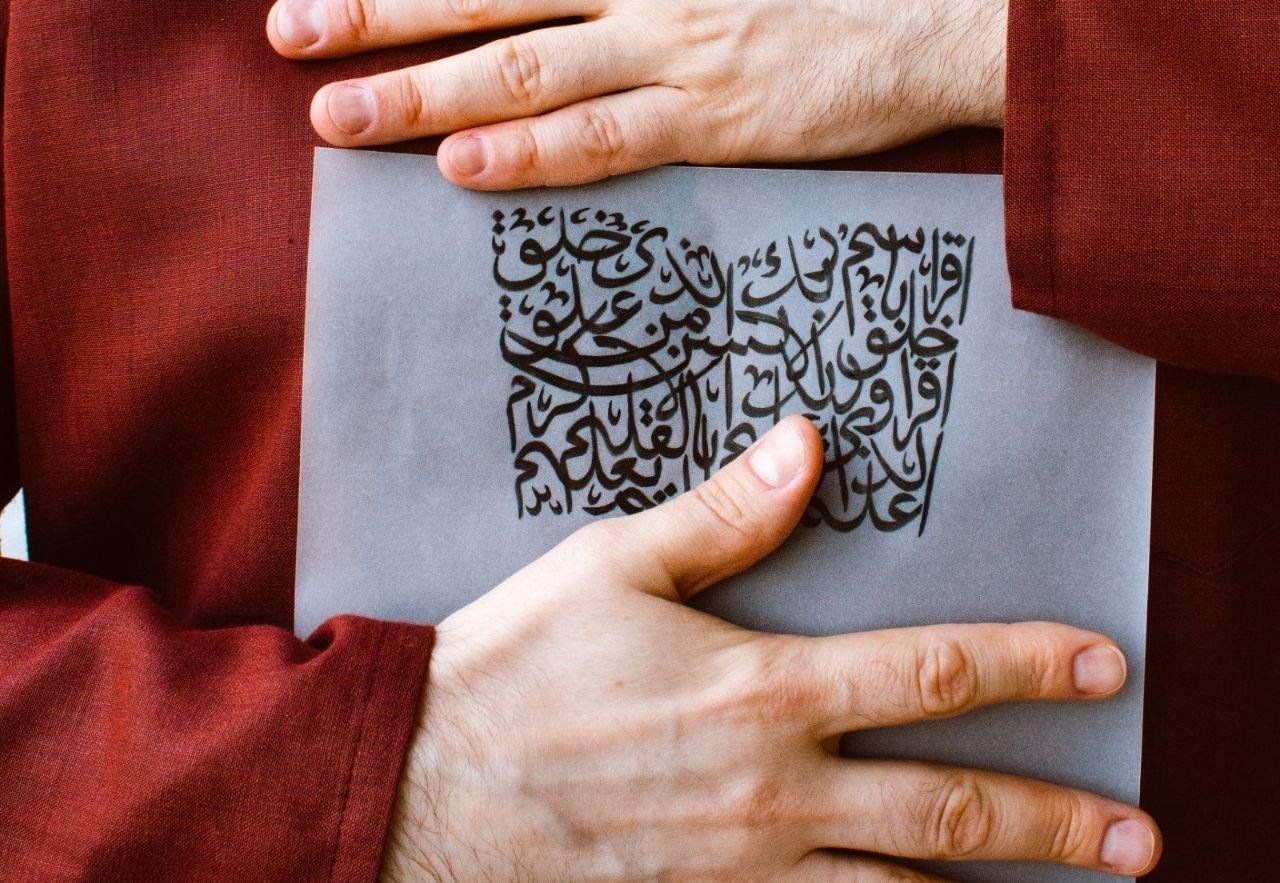 اقرا باسم ربك الذى خلق
خلق الانسن من علق
اقرا وربك الاكرم
الذى علم بالقلم
علم يعلم